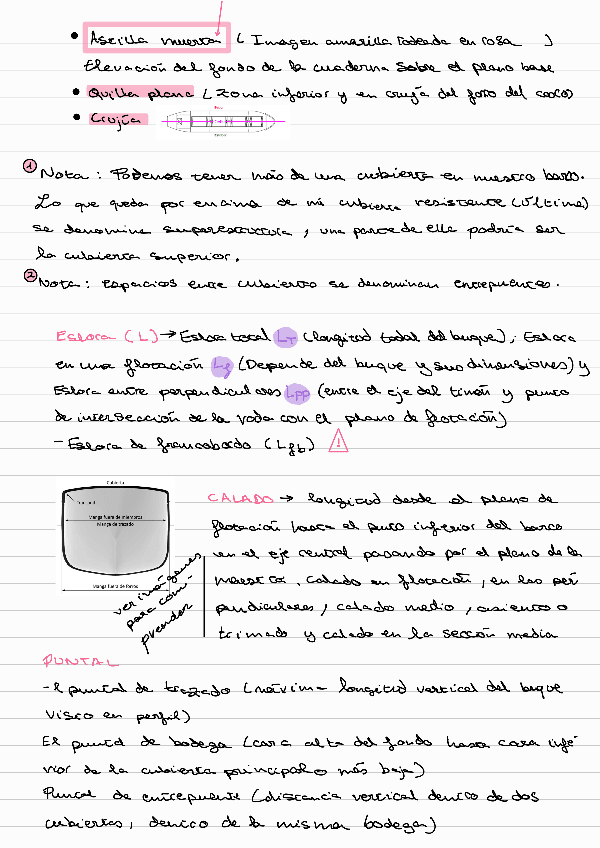 • Astilla muerta ( Imagen amarilla rodeada en rosa )
Elevación del fondo de la cuaderna sobre el plano base
• Quilla plana ( zona inferior y en crujía del forro del casco)
• Crujía
① Nota : Podemos tener más de una cubierta en nuestro barco.
Lo que queda por encima de mi cubierta resistente (última)
se denomina superestructura, una parte de ella podría ser
la cubierta superior.
② Nota : Espacios entre cubiertas se denominan entrepuentes.
Eslora (L) → Eslora total LT (longitud total del buque), Eslora
en una flotación Lf (Depende del buque y sus dimensiones) y
Eslora entre perpendiculares Lpp (entre el eje del timón y punto
de intersección de la roda con el plano de flotación)
- Eslora de francobordo (Lfb) ⚠
Cubierta
Manga fuera de miembros
Manga de trazado
Manga fuera de forros
ver imágenes
para com-
prender
CALADO → longitud desde el plano de
flotación hasta el punto inferior del barco
en el eje central pasando por el plano de la
maestra. calado en flotación, en las per
pendiculares, calado medio, asiento o
trimado y calado en la sección media
PUNTAL
- El puntal de trazado (máxim- longitud vertical del buque
visto en perfil)
El puntal de bodega (cara alta del fondo hasta cara infe-
rior de la cubierta principal o más baja)
Puntal de entrepuente (distancia vertical dentro de dos
cubiertas, dentro de la misma bodega)